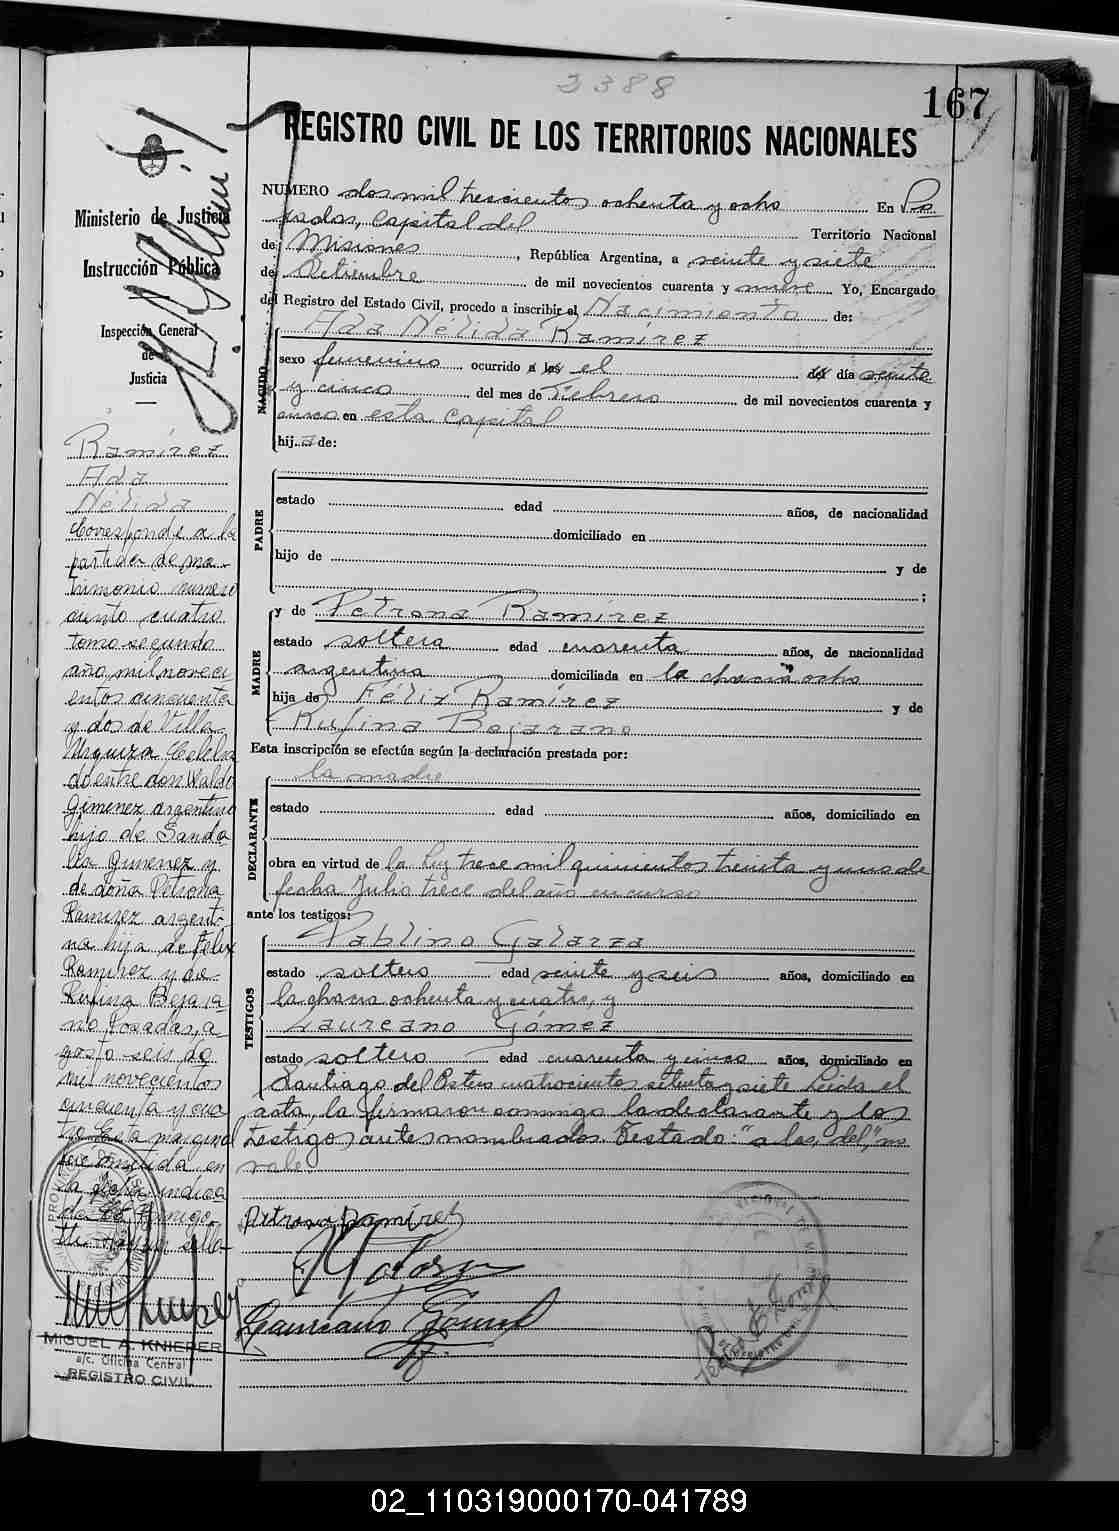 2388
167
REGISTRO CIVIL DE LOS TERRITORIOS NACIONALES
Ministerio de Justicia
Instrucción Pública
Inspección General
de
Justicia
Ramírez
Ada
Nélida
Corresponde a la
partida de ma-
trimonio número
ciento cuatro
tomo segundo
año mil noveci
entos cincuenta
y dos de Villa
Urquiza Celebra
do entre don Waldo
Gimenez argentino
hijo de Sanda
lia Gimenez y
de doña Petrona
Ramirez argenti-
na hija de Felix
Ramirez y de
Rufina Bejara
no Posadas, a-
gosto seis de
mil novecientos
cincuenta y cua
tro Esta marginal
fue omitida en
la fecha indica
MIGUEL A. KNIEPER
a/c. Oficina Central
REGISTRO CIVIL
NUMERO dos mil trescientos ochenta y ocho En Po
sadas, Capital del Territorio Nacional
de Misiones, República Argentina, a veinte y siete
de Setiembre de mil novecientos cuarenta y nueve Yo, Encargado
del Registro del Estado Civil, procedo a inscribir el Nacimiento de:
NACIDO
Ada Nélida Ramírez
sexo femenino ocurrido a las el del día veinte
y cinco del mes de Febrero de mil novecientos cuarenta y
cinco en esta Capital
hija de:
PADRE
estado edad años, de nacionalidad
domiciliado en
hijo de y de
;
MADRE
y de Petrona Ramírez
estado soltera edad cuarenta años, de nacionalidad
argentina domiciliada en la chacra ocho
hija de Félix Ramírez y de
Rufina Bejarano
Esta inscripción se efectúa según la declaración prestada por:
DECLARANTE
la madre
estado edad años, domiciliado en
obra en virtud de la Ley trece mil quinientos treinta y uno de
fecha Julio trece del año en curso
ante los testigos:
TESTIGOS
Pablino Galarza
estado soltero edad veinte y seis años, domiciliado en
la chacra ochenta y cuatro, y
Laureano Gómez
estado soltero edad cuarenta y cinco años, domiciliado en
Santiago del Estero cuatrocientos setenta y siete Leida el
acta, la firmaron conmigo la declarante y los
testigos antes nombrados. Testado: "a las, del," no
vale
Petrona Ramirez
Laureano Gómez
02_110319000170-041789